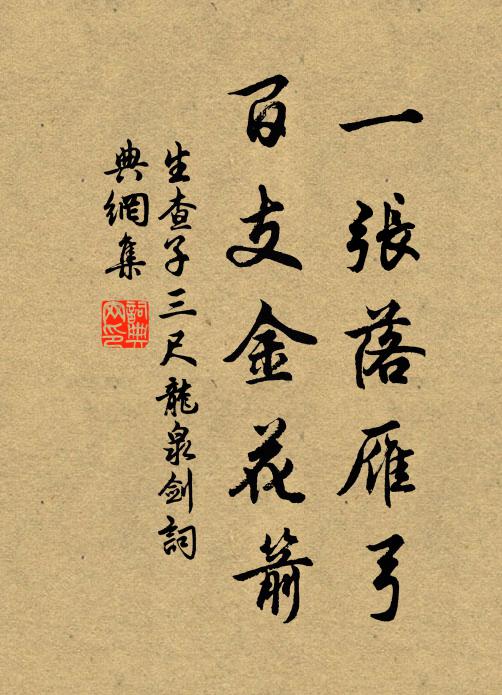 一張落雁弓
百支金花箭
生查子三尺龍泉劍詞
典網集
詞典
网印